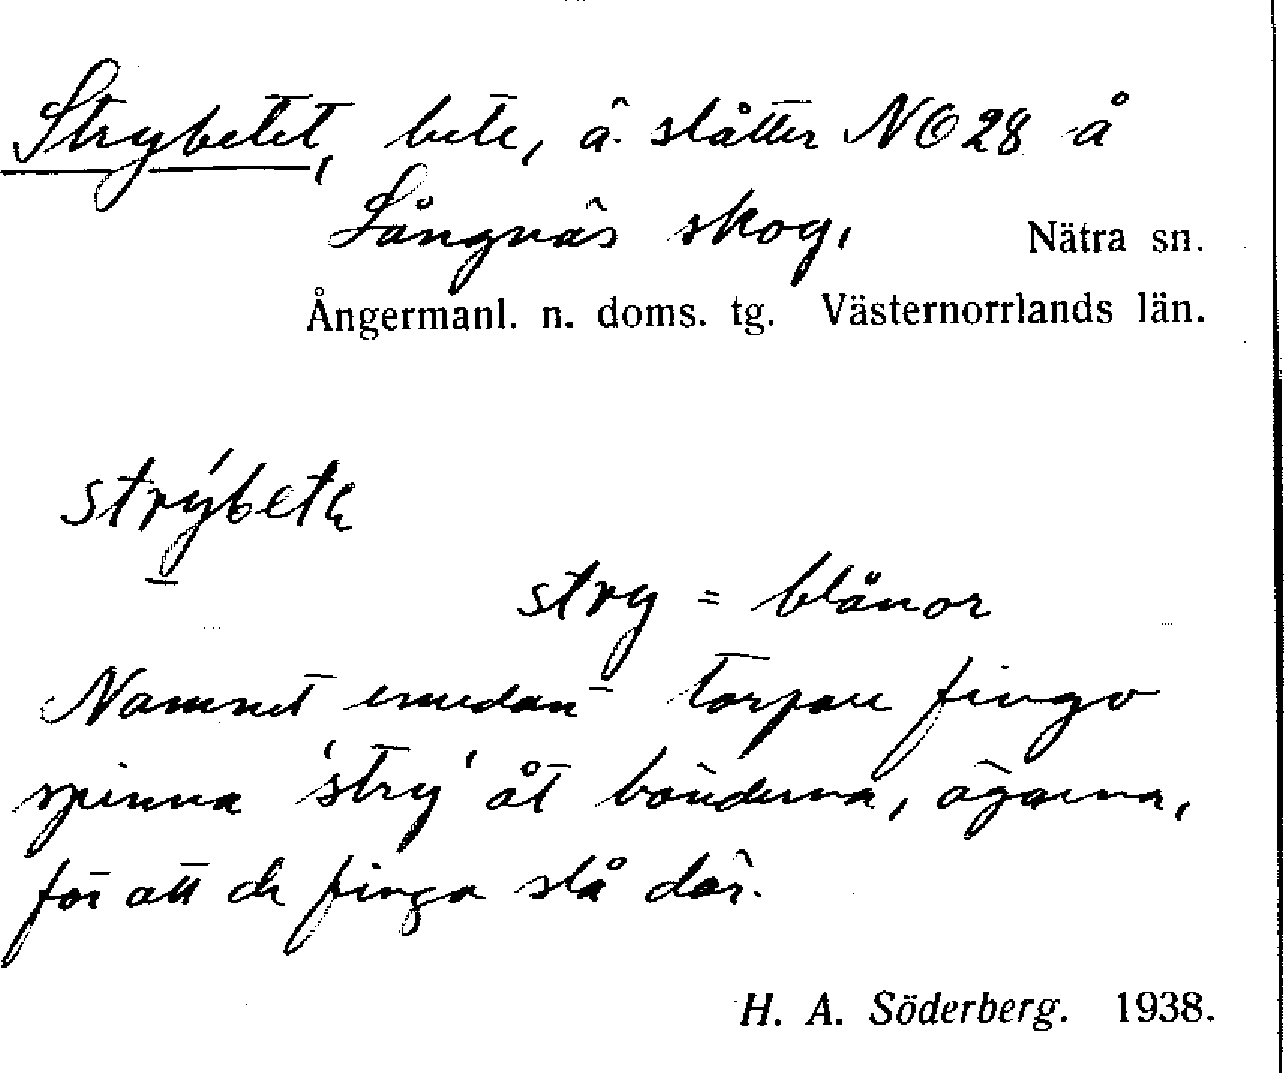 Strybetet, bete, ä. slåtter NO 28 å
Långnäs skog, Nätra sn.
Ångermanl. n. doms. tg. Västernorrlands län.
strybete
stry = blånor
Namnet emedan torpare fingo
spinna 'stry' åt bönderna, ägarna,
för att de finga slå där.
H. A. Söderberg. 1938.